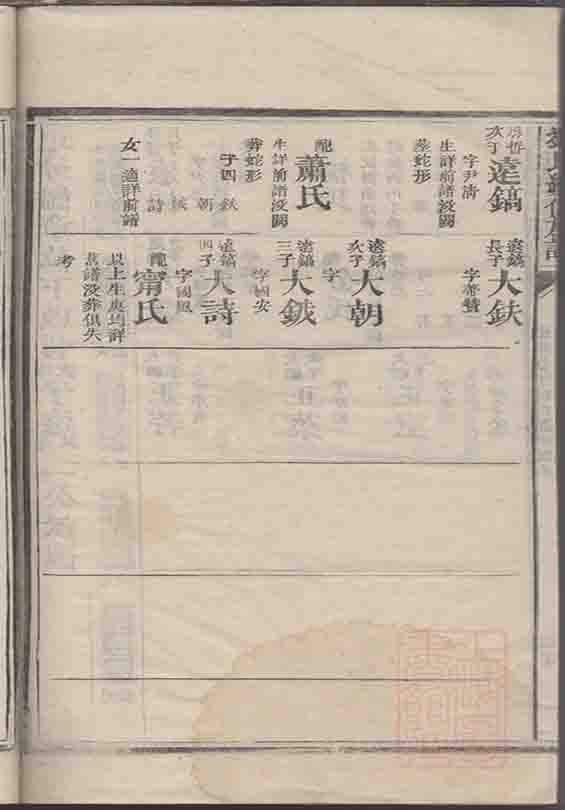 次子
遠鎬
字尹淸
生詳前譜没闕
葬蛇形
配
蕭氏
生詳前譜没闕
葬蛇形
子四
鈇
朝
鉞
詩
女一適詳前譜
遠鎬
長子
大鈇
遠鎬
次子
大朝
字
遠鎬
三子
大鉞
字國安
遠鎬
四子
大詩
字國風
配
甯氏
以上生庚均詳
舊譜没葬俱失
考